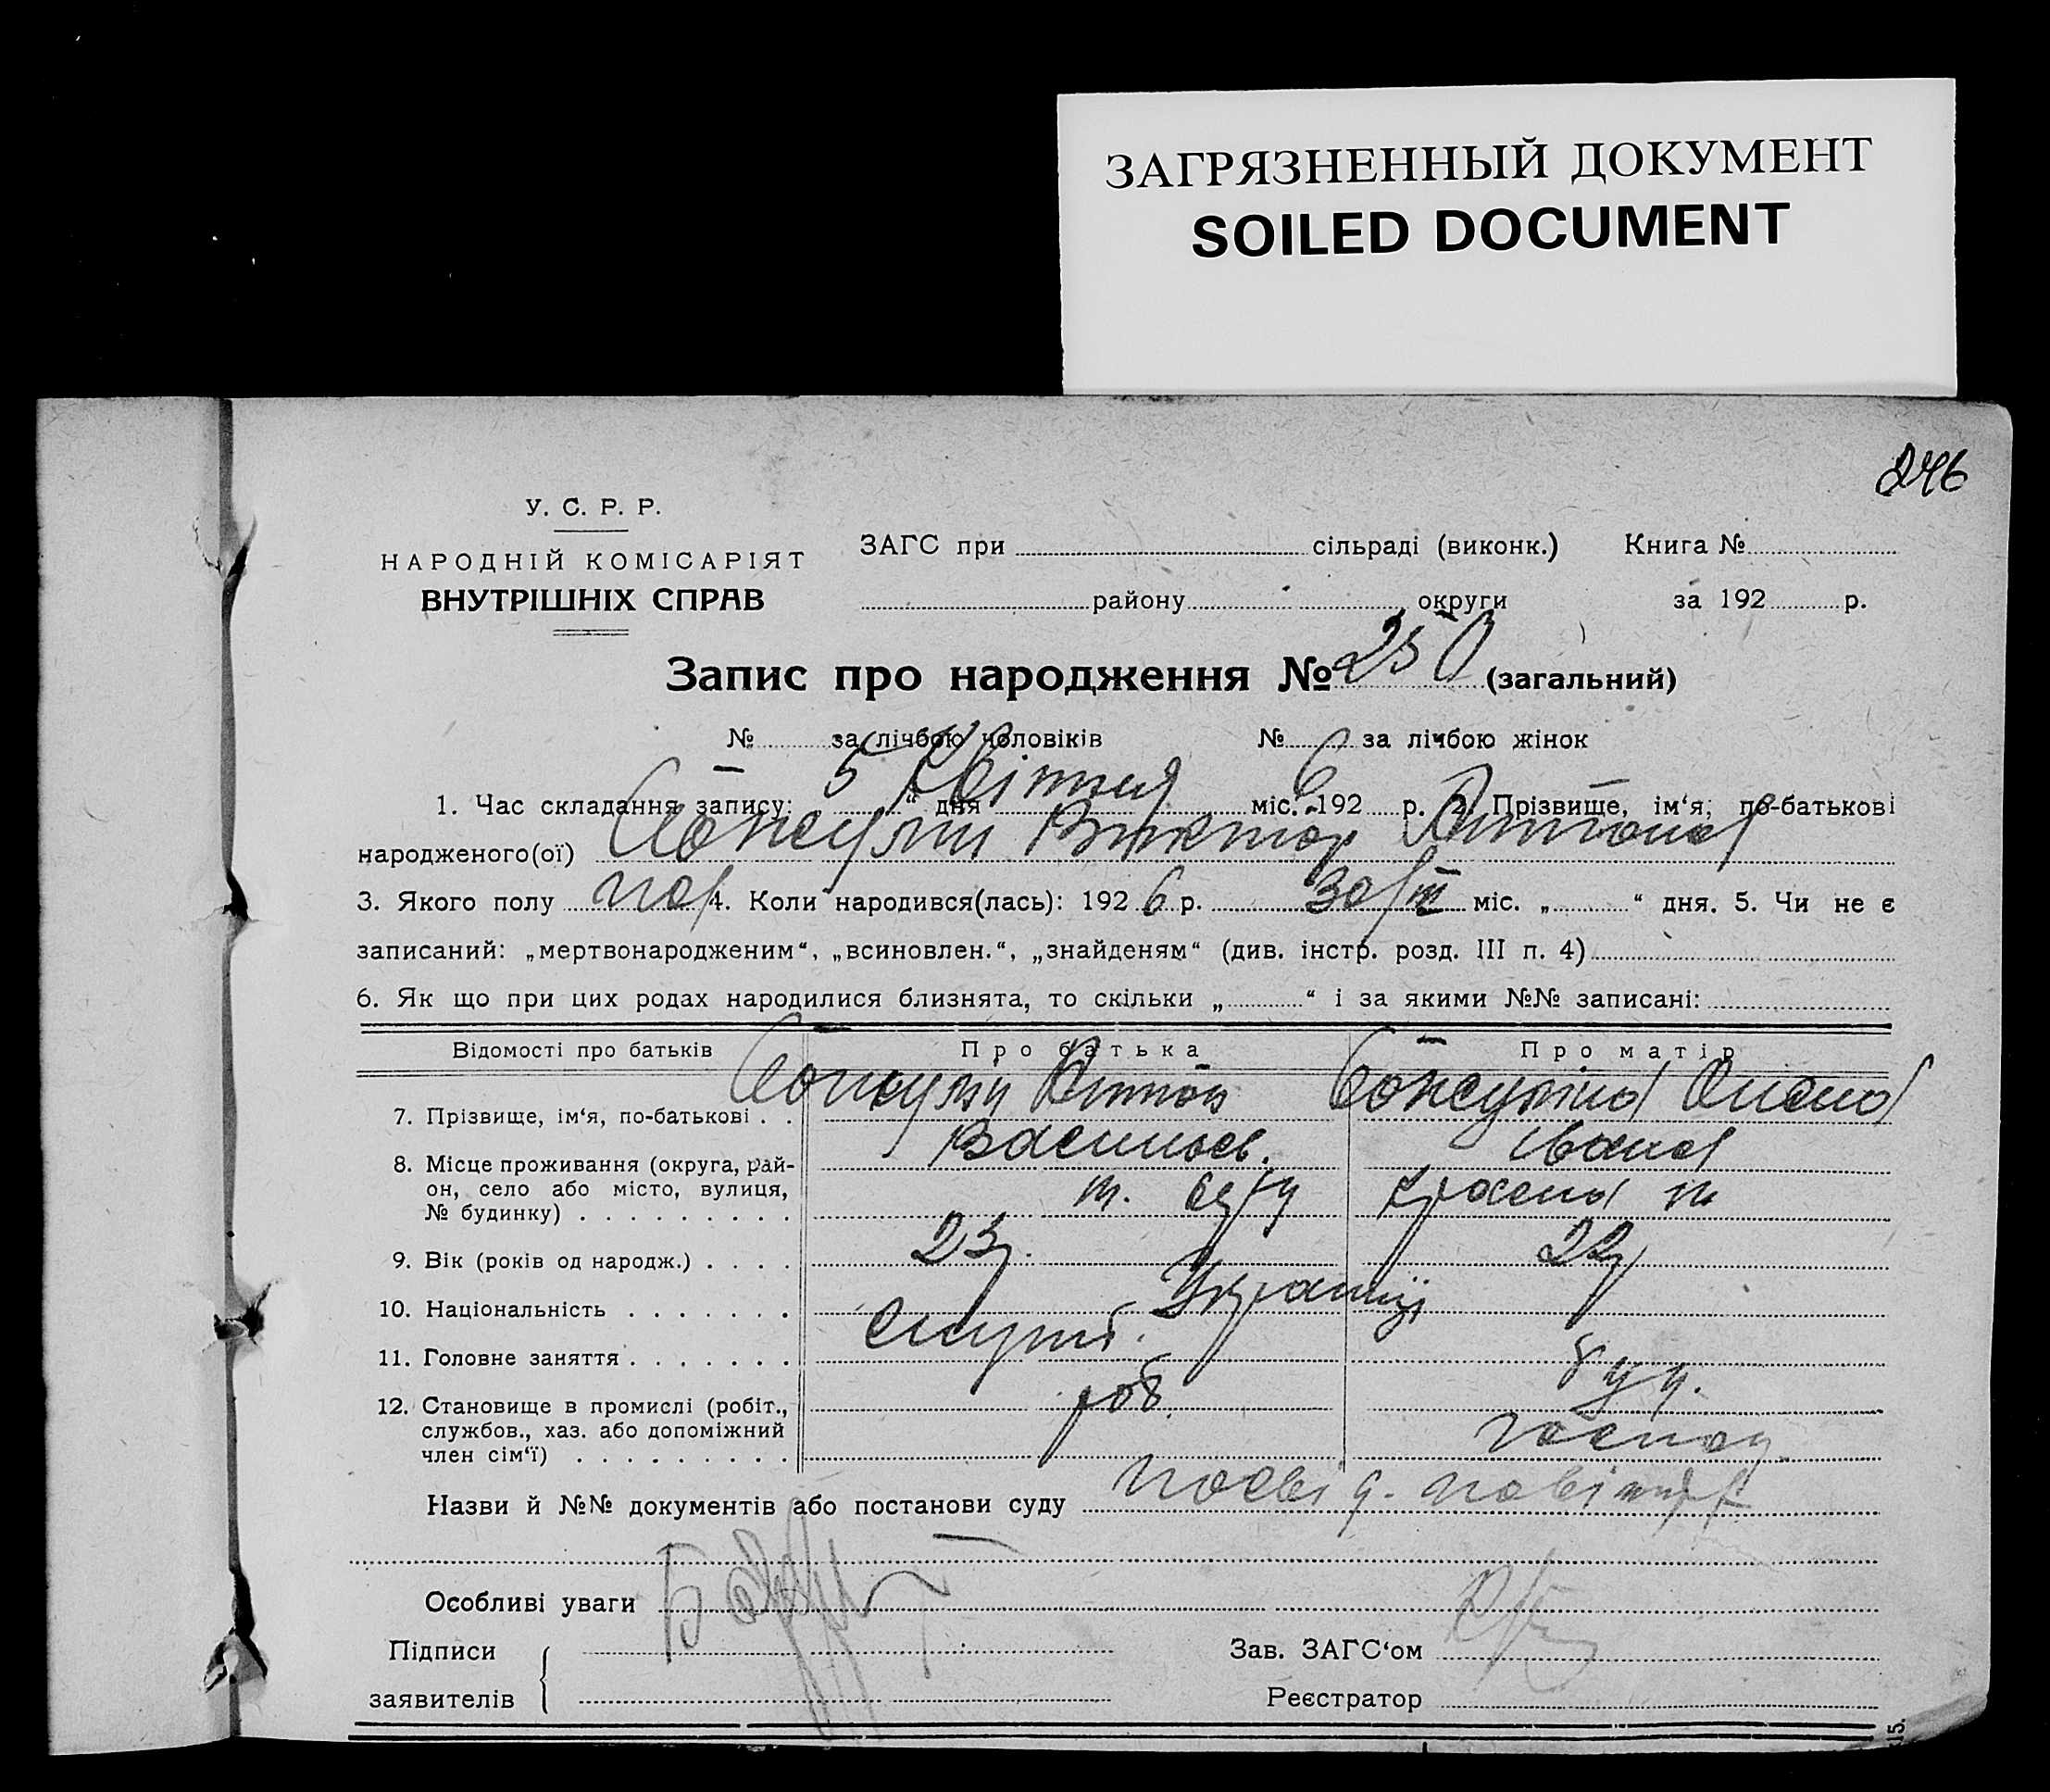 ЗАГРЯЗНЕННЫЙ ДОКУМЕНТ
SOILED DOCUMENT
246
У. С. Р. Р.
НАРОДНІЙ КОМІСАРІЯТ
ВНУТРІШНІХ СПРАВ
ЗАГС при сільраді (виконк.) Книга №
району округи за 192 р.
Запис про народження № 250 (загальний)
№ за лічбою чоловіків № за лічбою жінок
1. Час складання запису: 5 “ дня Квітня міс. 192 6 р. 2. Прізвище, ім‘я, по-батькові
народженого(ої) Виктор Антонов
3. Якого полу 4. Коли народився(лась): 192 6 р. 30/III міс. „ “ дня. 5. Чи не є
записаний: „мертвонародженим“, „всиновлен.“, „знайденям“ (див. інстр. розд. III п. 4)
6. Як що при цих родах народилися близнята, то скільки „ “ і за якими №№ записані:
Відомості про батьків Про батька Про матір
7. Прізвище, ім‘я, по-батькові . . Антон
Васильев. Івана
8. Місце проживання (округа, рай-
он, село або місто, вулиця,
№ будинку) м.
9. Вік (років од народж.) 23 р. 22 р
10. Національність Українці
11. Головне заняття
12. Становище в промислі (робіт.,
службов., хаз. або допоміжний
член сім‘ї) роб. господ.
Назви й №№ документів або постанови суду посвід.
Особливі уваги
Підписи
заявителів
Зав. ЗАГС‘ом
Реєстратор